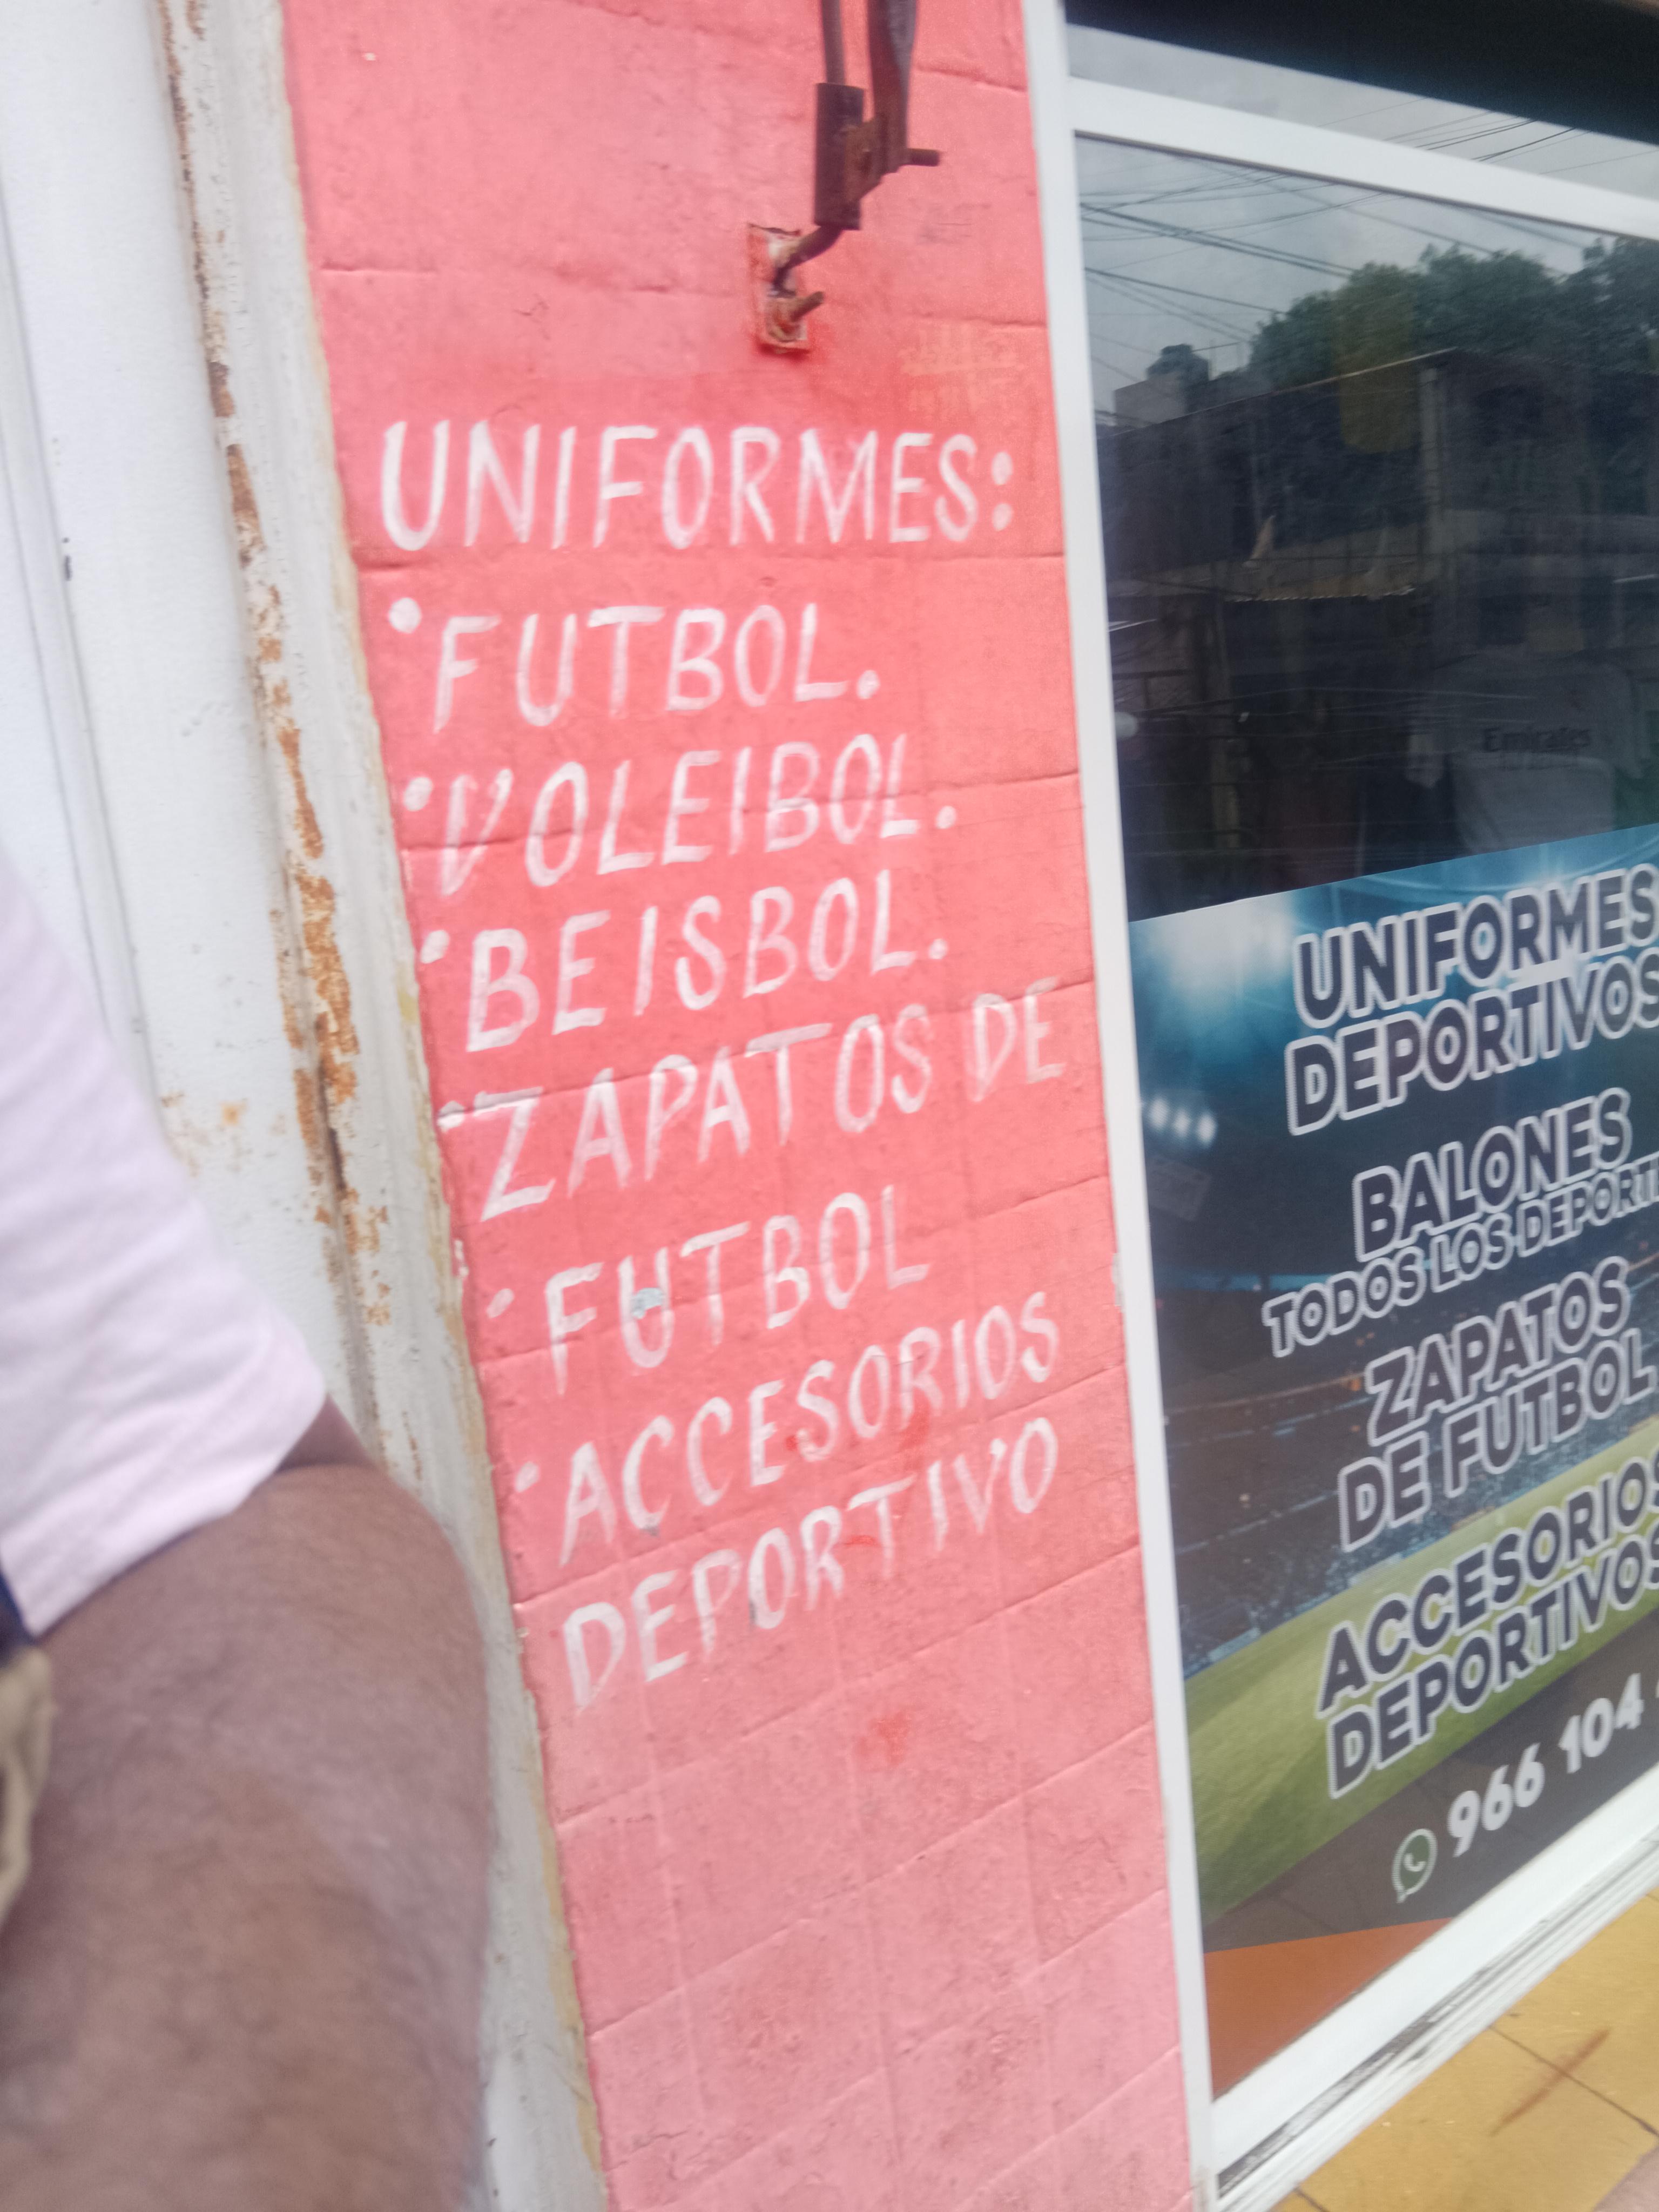 UNIFORMES:
•FUTBOL.
•VOLEIBOL.
•BEISBOL.
•ZAPATOS DE
•FUTBOL
•ACCESORIOS
DEPORTIVO
Emirates
UNIFORMES
DEPORTIVOS
BALONES
TODOS LOS DEPORT
ZAPATOS
DE FUTBOL
ACCESORIOS
DEPORTIVOS
966 104